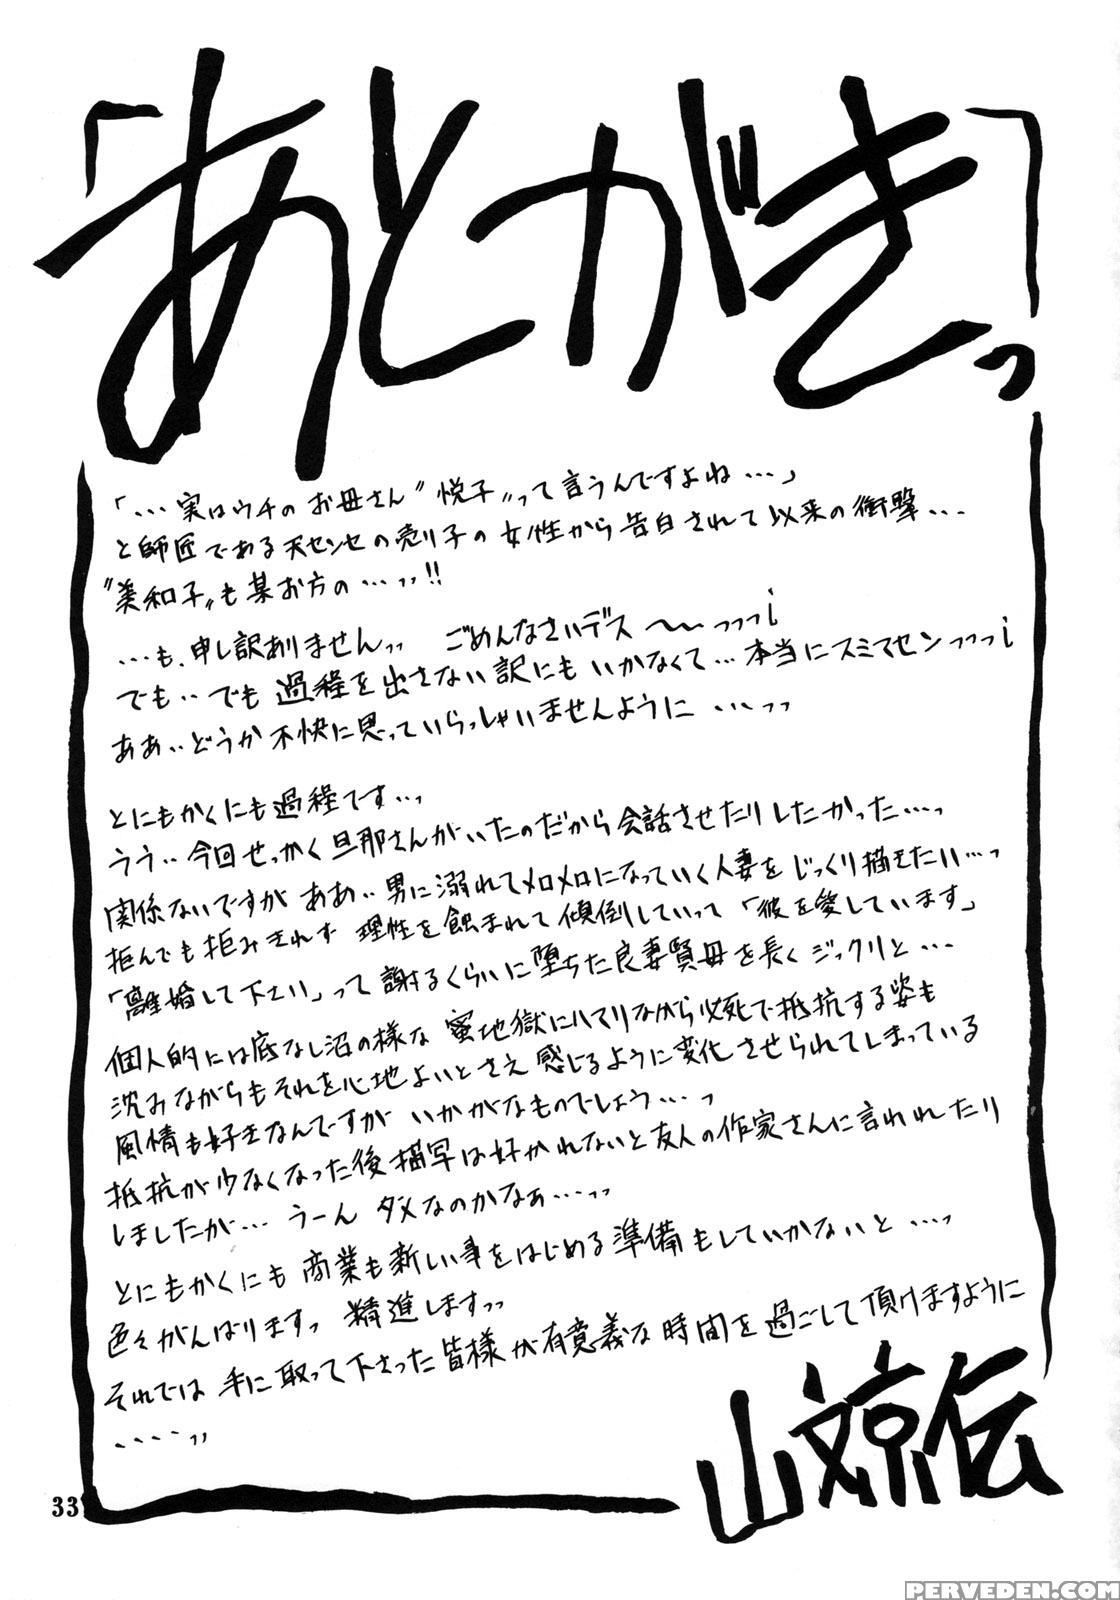 「あとがきっ」
「・・・実はウチのお母さん〝悦子〟って言うんですよね・・・」
と師匠である天センセの売り子の女性から告白されて以来の衝撃・・・
〝美和子〟も某お方の・・・ッッ!!
・・・も、申し訳ありませんッッ ごめんなさいデス～～ッっっ¡
でも・・でも過程を出さない訳にもいかなくて・・・本当にスミマセンっっっ¡
ああ・・どうか不快に思っていらっしゃいませんように・・・ッッ
とにもかくにも過程です・・・っ
うう・・今回せっかく旦那さんがいたのだから会話させたりしたかった・・・っ
関係ないですが ああ・・男に溺れてメロメロになっていく人妻をじっくり描きたい・・・っ
拒んでも拒みきれず 理性を蝕まれて傾倒していって「彼を愛しています」
「離婚して下さい」って謝るくらいに堕ちた良妻賢母を長くジックリと・・・
個人的には底なし沼の様な蜜地獄にハマりながら必死で抵抗する姿も
沈みながらもそれを心地よいとさえ感じるように変化させられてしまっている
風情も好きなんですが いかがなものでしょう・・・っ
抵抗が少なくなった後描写は好かれないと友人の作家さんに言われたり
しましたが・・・ うーん ダメなのかなぁ・・・ッッ
とにもかくにも 商業も新しい事をはじめる準備もしていかないと・・・ッ
色々がんばりますっ 精進しますッッ
それでは 手に取って下さった皆様が有意義な時間を過ごして頂けますように
・・・・ッッ
山文京伝
33
PERVEDEN.COM